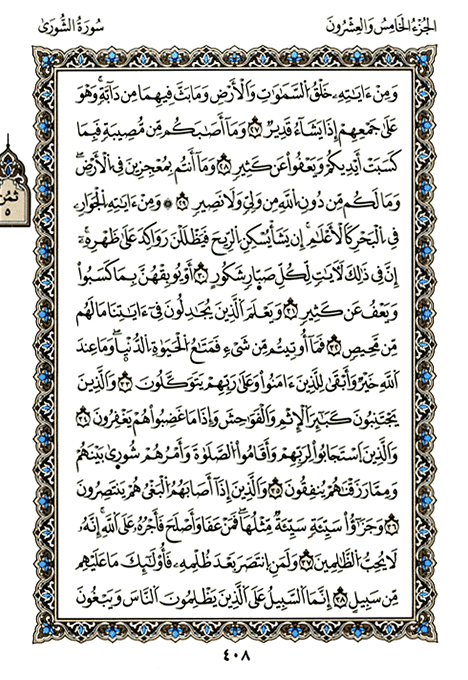 الجُزْءُ الخَامِسُ وَالعِشْرُونَ
سُورَةُ الشُّورَىٰ
وَمِنْ ءَايَٰتِهِۦ خَلْقُ السَّمَٰوَٰتِ وَالْأَرْضِ وَمَا بَثَّ فِيهِمَا مِن دَآبَّةٍ وَهُوَ
عَلَىٰ جَمْعِهِمْ إِذَا يَشَآءُ قَدِيرٌ ٢٧ وَمَآ أَصَٰبَكُم مِّن مُّصِيبَةٍ فَبِمَا
كَسَبَتْ أَيْدِيكُمْ وَيَعْفُوا۟ عَن كَثِيرٍ ٢٨ وَمَآ أَنتُم بِمُعْجِزِينَ فِي الْأَرْضِ
وَمَا لَكُم مِّن دُونِ اللَّهِ مِن وَلِيٍّ وَلَا نَصِيرٍ ٢٩ ۞ وَمِنْ ءَايَٰتِهِ الْجَوَارِ
فِي الْبَحْرِ كَالْأَعْلَٰمِ إِن يَشَأْ يُسْكِنِ الرِّيحَ فَيَظْلَلْنَ رَوَاكِدَ عَلَىٰ ظَهْرِهِۦٓ
إِنَّ فِي ذَٰلِكَ لَءَايَٰتٍ لِّكُلِّ صَبَّارٍ شَكُورٍ ٣٠ أَوْ يُوبِقْهُنَّ بِمَا كَسَبُوا۟
وَيَعْفُ عَن كَثِيرٍ ٣١ وَيَعْلَمَ الَّذِينَ يُجَٰدِلُونَ فِيٓ ءَايَٰتِنَا مَا لَهُم
مِّن مَّحِيصٍ ٣٢ فَمَآ أُوتِيتُم مِّن شَيْءٍ فَمَتَٰعُ الْحَيَوٰةِ الدُّنْيَا وَمَا عِندَ
اللَّهِ خَيْرٌ وَأَبْقَىٰ لِلَّذِينَ ءَامَنُوا۟ وَعَلَىٰ رَبِّهِمْ يَتَوَكَّلُونَ ٣٣ وَالَّذِينَ
يَجْتَنِبُونَ كَبَٰٓئِرَ الْإِثْمِ وَالْفَوَٰحِشَ وَإِذَا مَا غَضِبُوا۟ هُمْ يَغْفِرُونَ ٣٤
وَالَّذِينَ اسْتَجَابُوا۟ لِرَبِّهِمْ وَأَقَامُوا۟ الصَّلَوٰةَ وَأَمْرُهُمْ شُورَىٰ بَيْنَهُمْ
وَمِمَّا رَزَقْنَٰهُمْ يُنفِقُونَ ٣٥ وَالَّذِينَ إِذَآ أَصَابَهُمُ الْبَغْيُ هُمْ يَنتَصِرُونَ
٣٦ وَجَزَٰٓؤُا۟ سَيِّئَةٍ سَيِّئَةٌ مِّثْلُهَا فَمَنْ عَفَا وَأَصْلَحَ فَأَجْرُهُۥ عَلَى اللَّهِ إِنَّهُۥ
لَا يُحِبُّ الظَّٰلِمِينَ ٣٧ وَلَمَنِ انتَصَرَ بَعْدَ ظُلْمِهِۦ فَأُو۟لَٰٓئِكَ مَا عَلَيْهِم
مِّن سَبِيلٍ ٣٨ إِنَّمَا السَّبِيلُ عَلَى الَّذِينَ يَظْلِمُونَ النَّاسَ وَيَبْغُونَ
ثُمُن
٥
٤٠٨